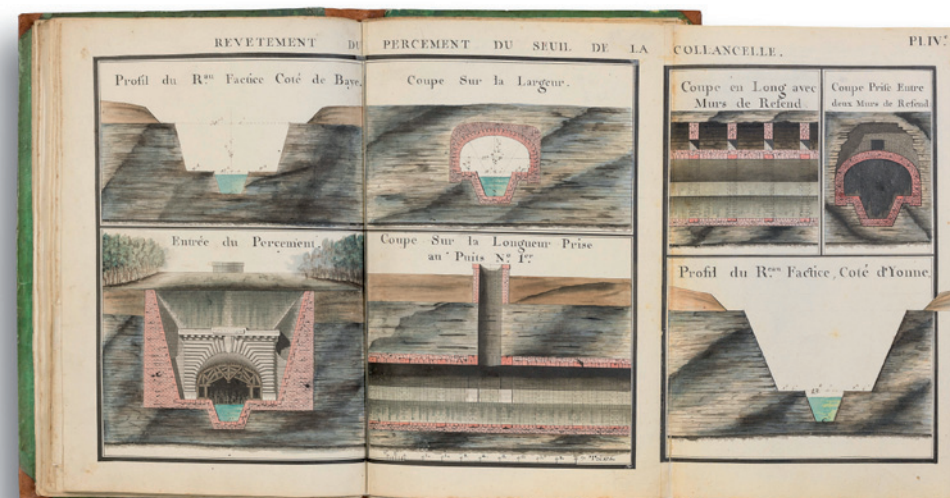 REVETEMENT DU PERCEMENT DU SEUIL DE LA COLLANCELLE.
PL.IV.
Profil du R.au Factice Coté de Baye.
Coupe Sur la Largeur.
Coupe en Long avec
Murs de Refend.
Coupe Prise Entre
deux Murs de Refend
Entrée du Percement.
Coupe Sur la Longueur Prise
au Puits N.o 1.er
Profil du R.eau Factice, Coté d'Yonne.